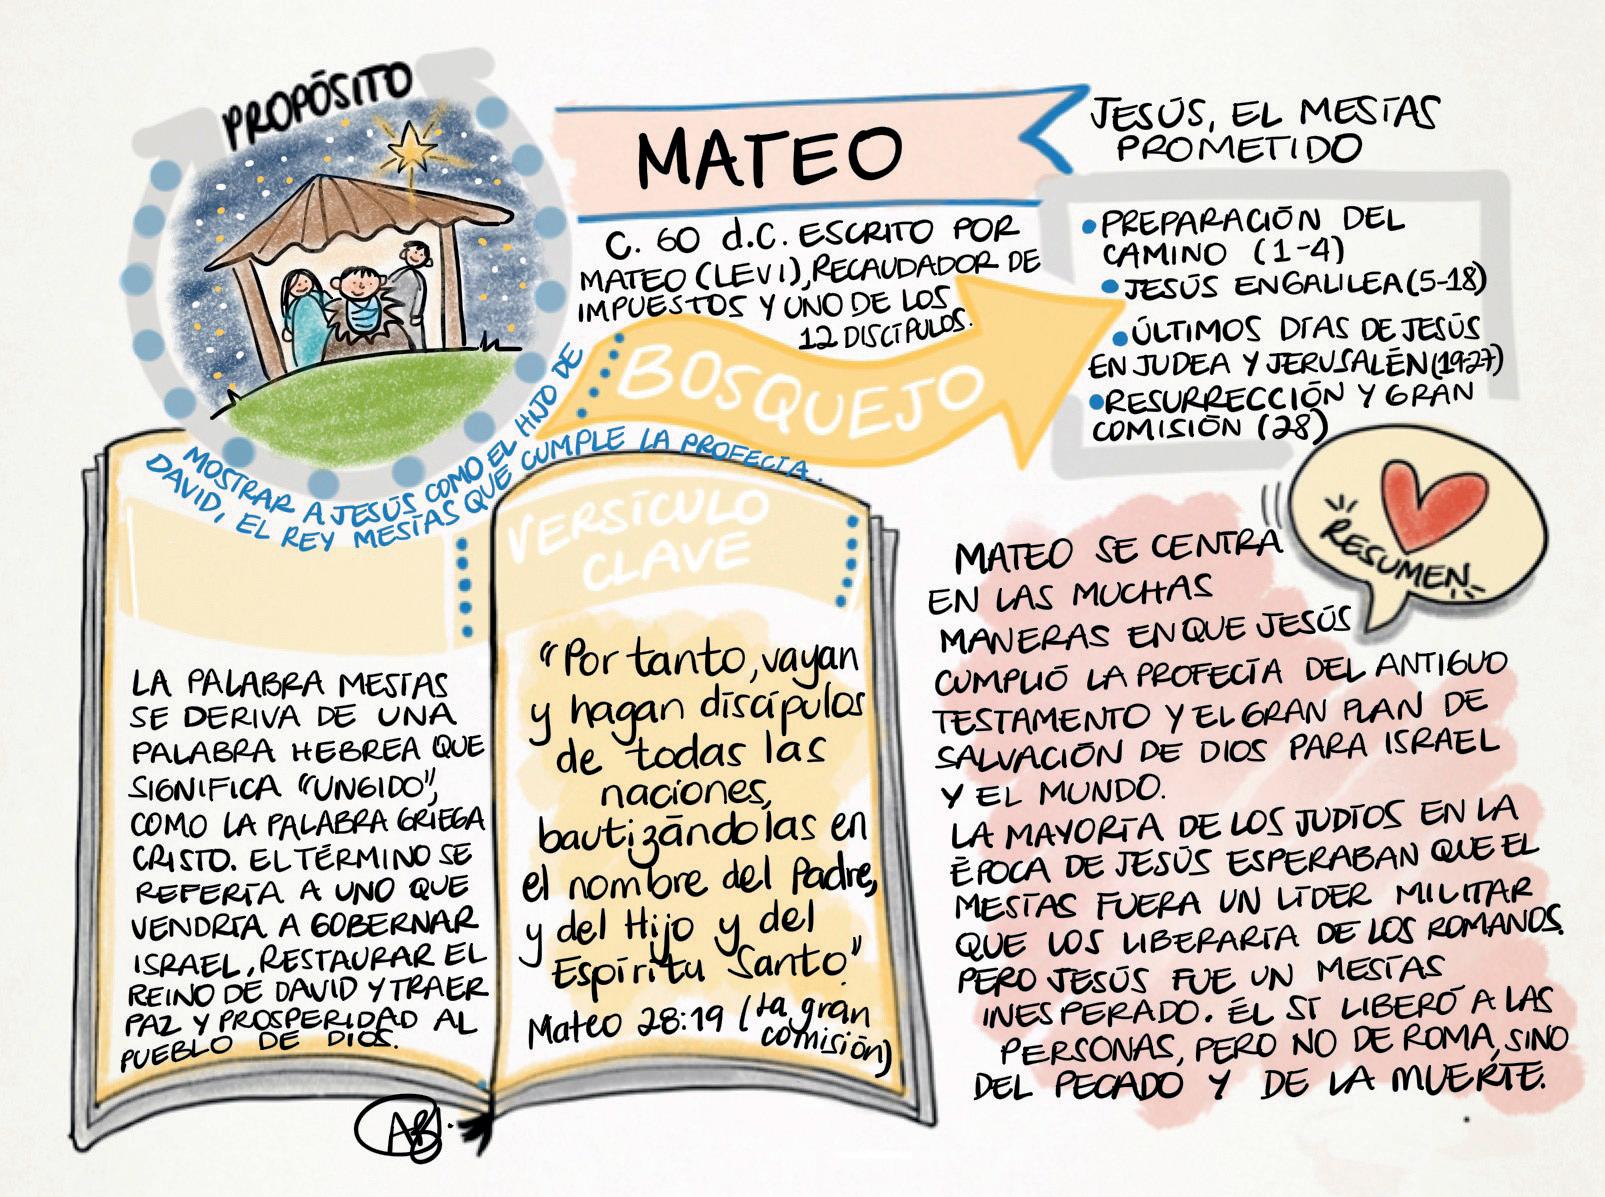 PROPÓSITO
MOSTRAR A JESÚS COMO EL HIJO DE
DAVID, EL REY MESÍAS QUE CUMPLE LA PROFECÍA.
MATEO
JESÚS, EL MESÍAS
PROMETIDO
C. 60 d.C. ESCRITO POR
MATEO (LEVI), RECAUDADOR DE
IMPUESTOS Y UNO DE LOS
12 DISCÍPULOS.
BOSQUEJO
• PREPARACIÓN DEL
CAMINO (1-4)
• JESÚS EN GALILEA (5-18)
• ÚLTIMOS DÍAS DE JESÚS
EN JUDEA Y JERUSALÉN (19-27)
• RESURRECCIÓN Y GRAN
COMISIÓN (28)
LA PALABRA MESÍAS
SE DERIVA DE UNA
PALABRA HEBREA QUE
SIGNIFICA "UNGIDO",
COMO LA PALABRA GRIEGA
CRISTO. EL TÉRMINO SE
REFERÍA A UNO QUE
VENDRÍA A GOBERNAR
ISRAEL, RESTAURAR EL
REINO DE DAVID Y TRAER
PAZ Y PROSPERIDAD AL
PUEBLO DE DIOS.
VERSÍCULO
CLAVE
"Por tanto, vayan
y hagan discípulos
de todas las
naciones,
bautizándolas en
el nombre del Padre,
y del Hijo y del
Espíritu Santo."
Mateo 28:19 (La gran
comisión)
RESUMEN
MATEO SE CENTRA
EN LAS MUCHAS
MANERAS EN QUE JESÚS
CUMPLIÓ LA PROFECÍA DEL ANTIGUO
TESTAMENTO Y EL GRAN PLAN DE
SALVACIÓN DE DIOS PARA ISRAEL
Y EL MUNDO.
LA MAYORÍA DE LOS JUDÍOS EN LA
ÉPOCA DE JESÚS ESPERABAN QUE EL
MESÍAS FUERA UN LÍDER MILITAR
QUE LOS LIBERARÍA DE LOS ROMANOS.
PERO JESÚS FUE UN MESÍAS
INESPERADO. ÉL SÍ LIBERÓ A LAS
PERSONAS, PERO NO DE ROMA, SINO
DEL PECADO Y DE LA MUERTE.